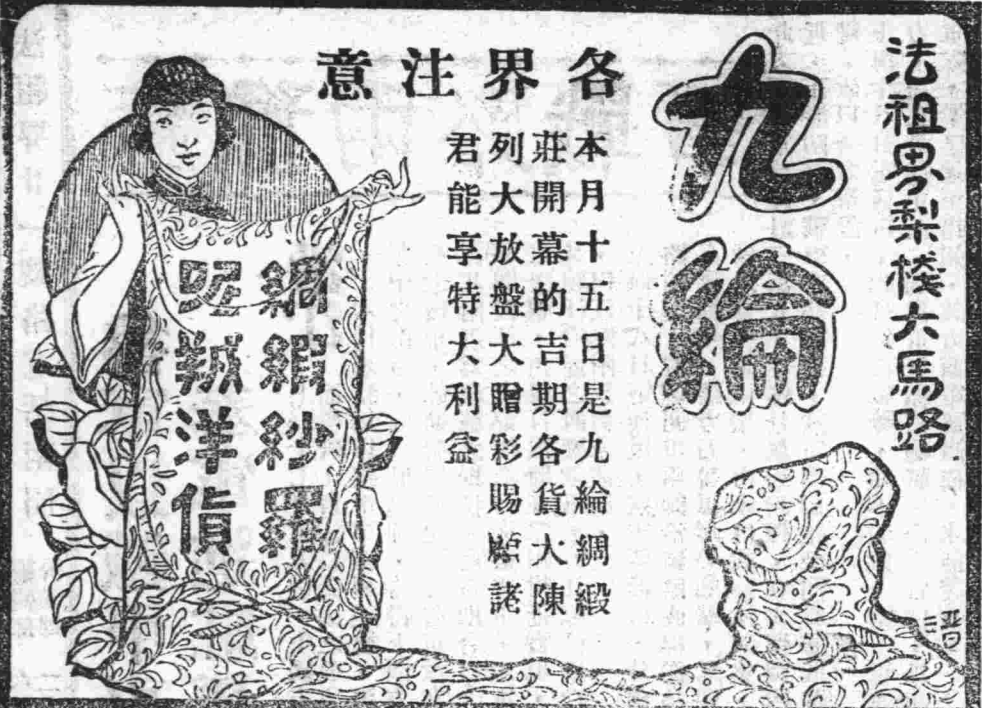 法祖界梨棧大馬路
九綸
各界注意
本月十五日是九綸綢緞
莊開幕的吉期各貨大陳
列大放盤大贈彩賜顧諸
君能享特大利益
綢緞紗羅
呢絨洋貨